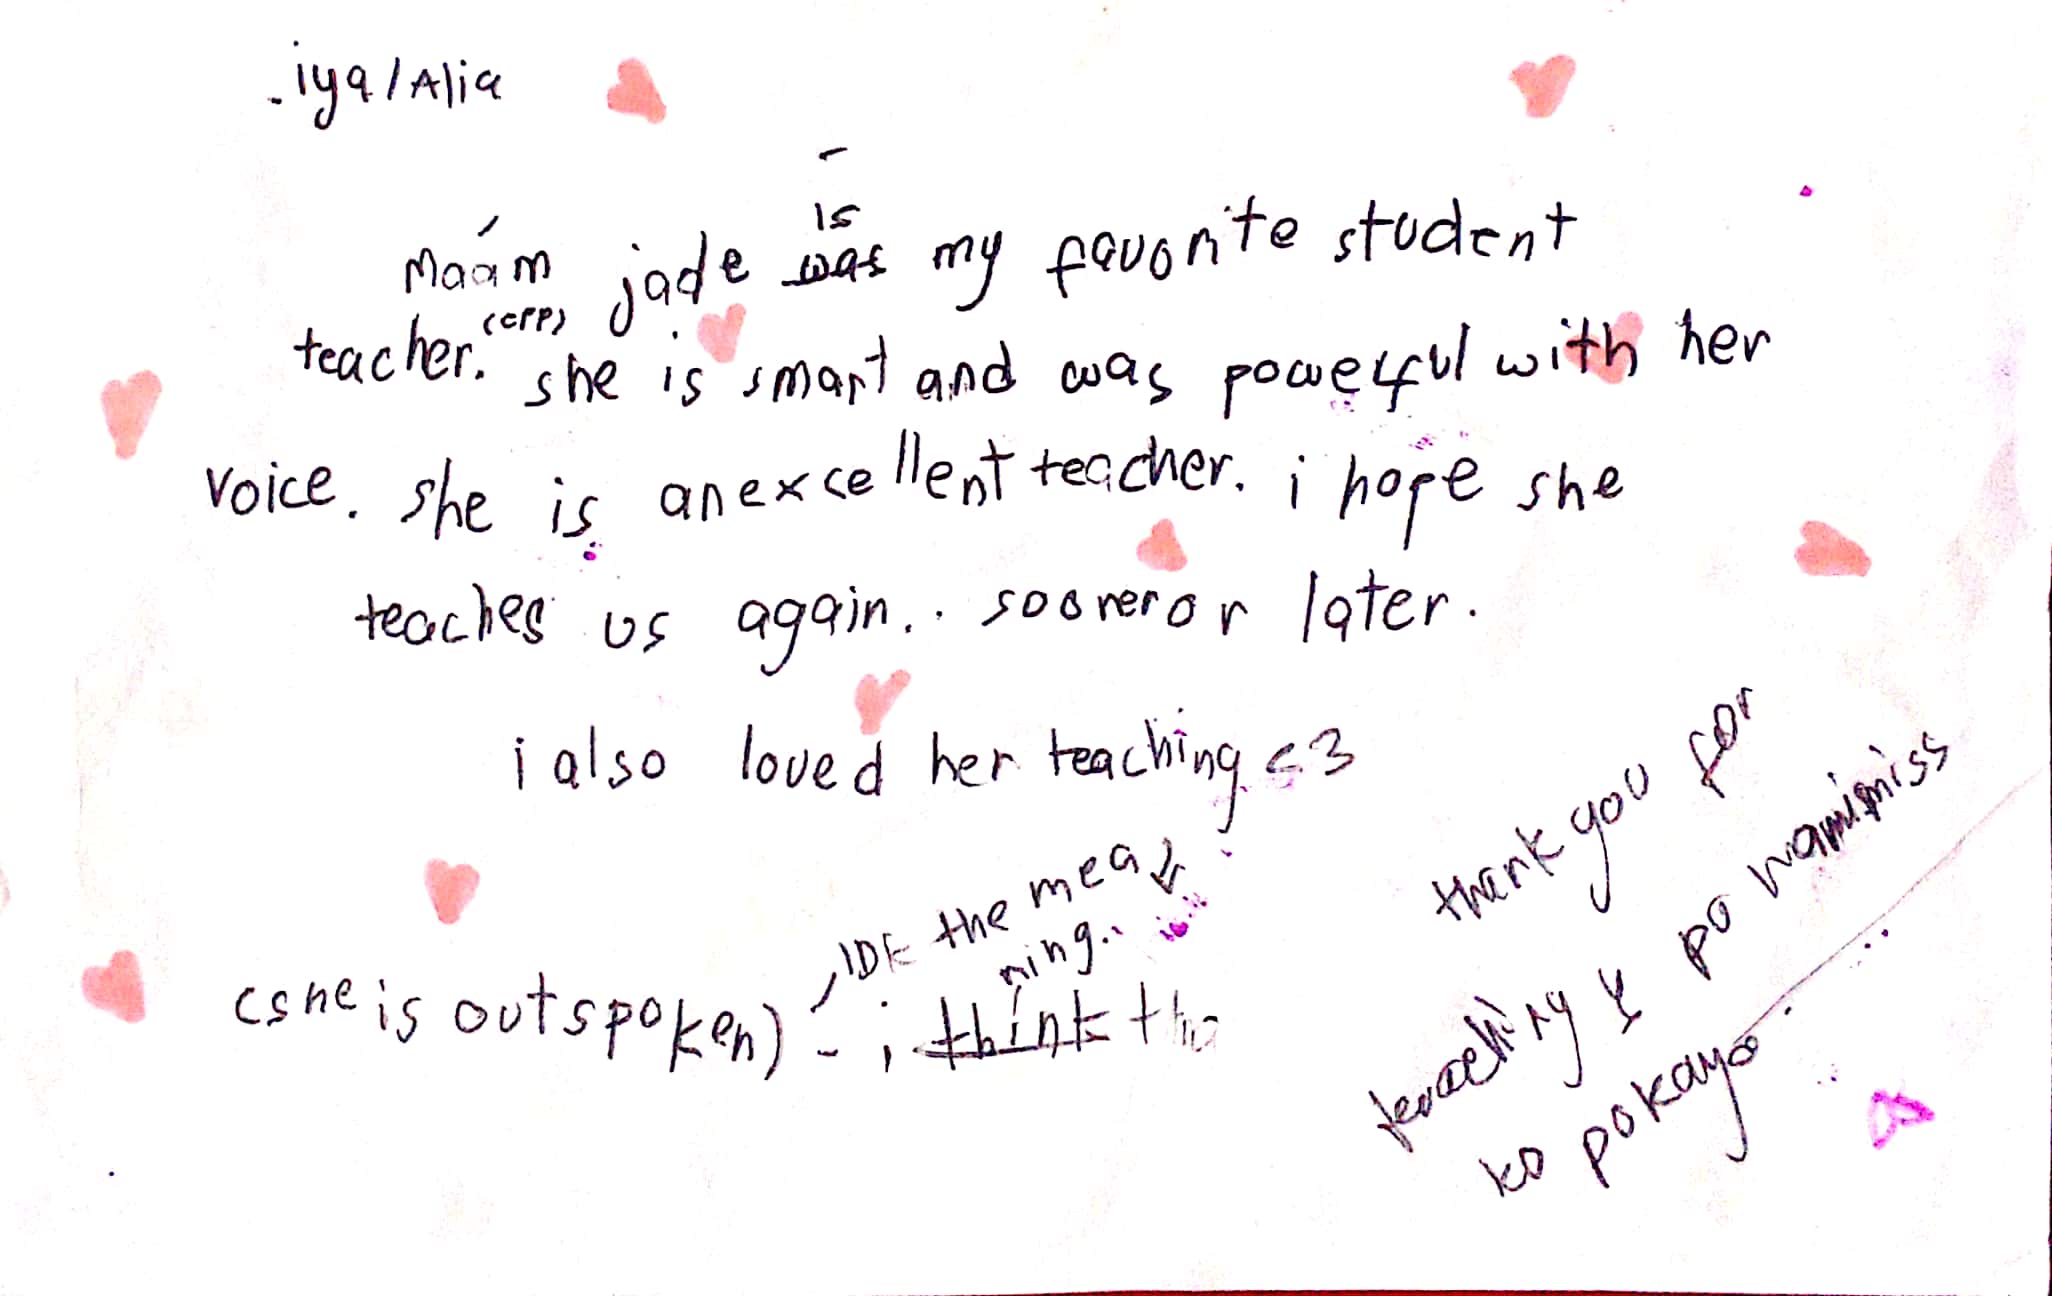 -iya/Alia
is
Maam jade was my favorite student
teacher. (EPP) she is smart and was powerful with her
voice. she is an excellent teacher. i hope she
teaches us again.. sooner or later.
i also loved her teaching <3
(she is outspoken) - i think tha
IDK the mea
ning..
thank you for
teaching & po mamimiss
ko po kayo...